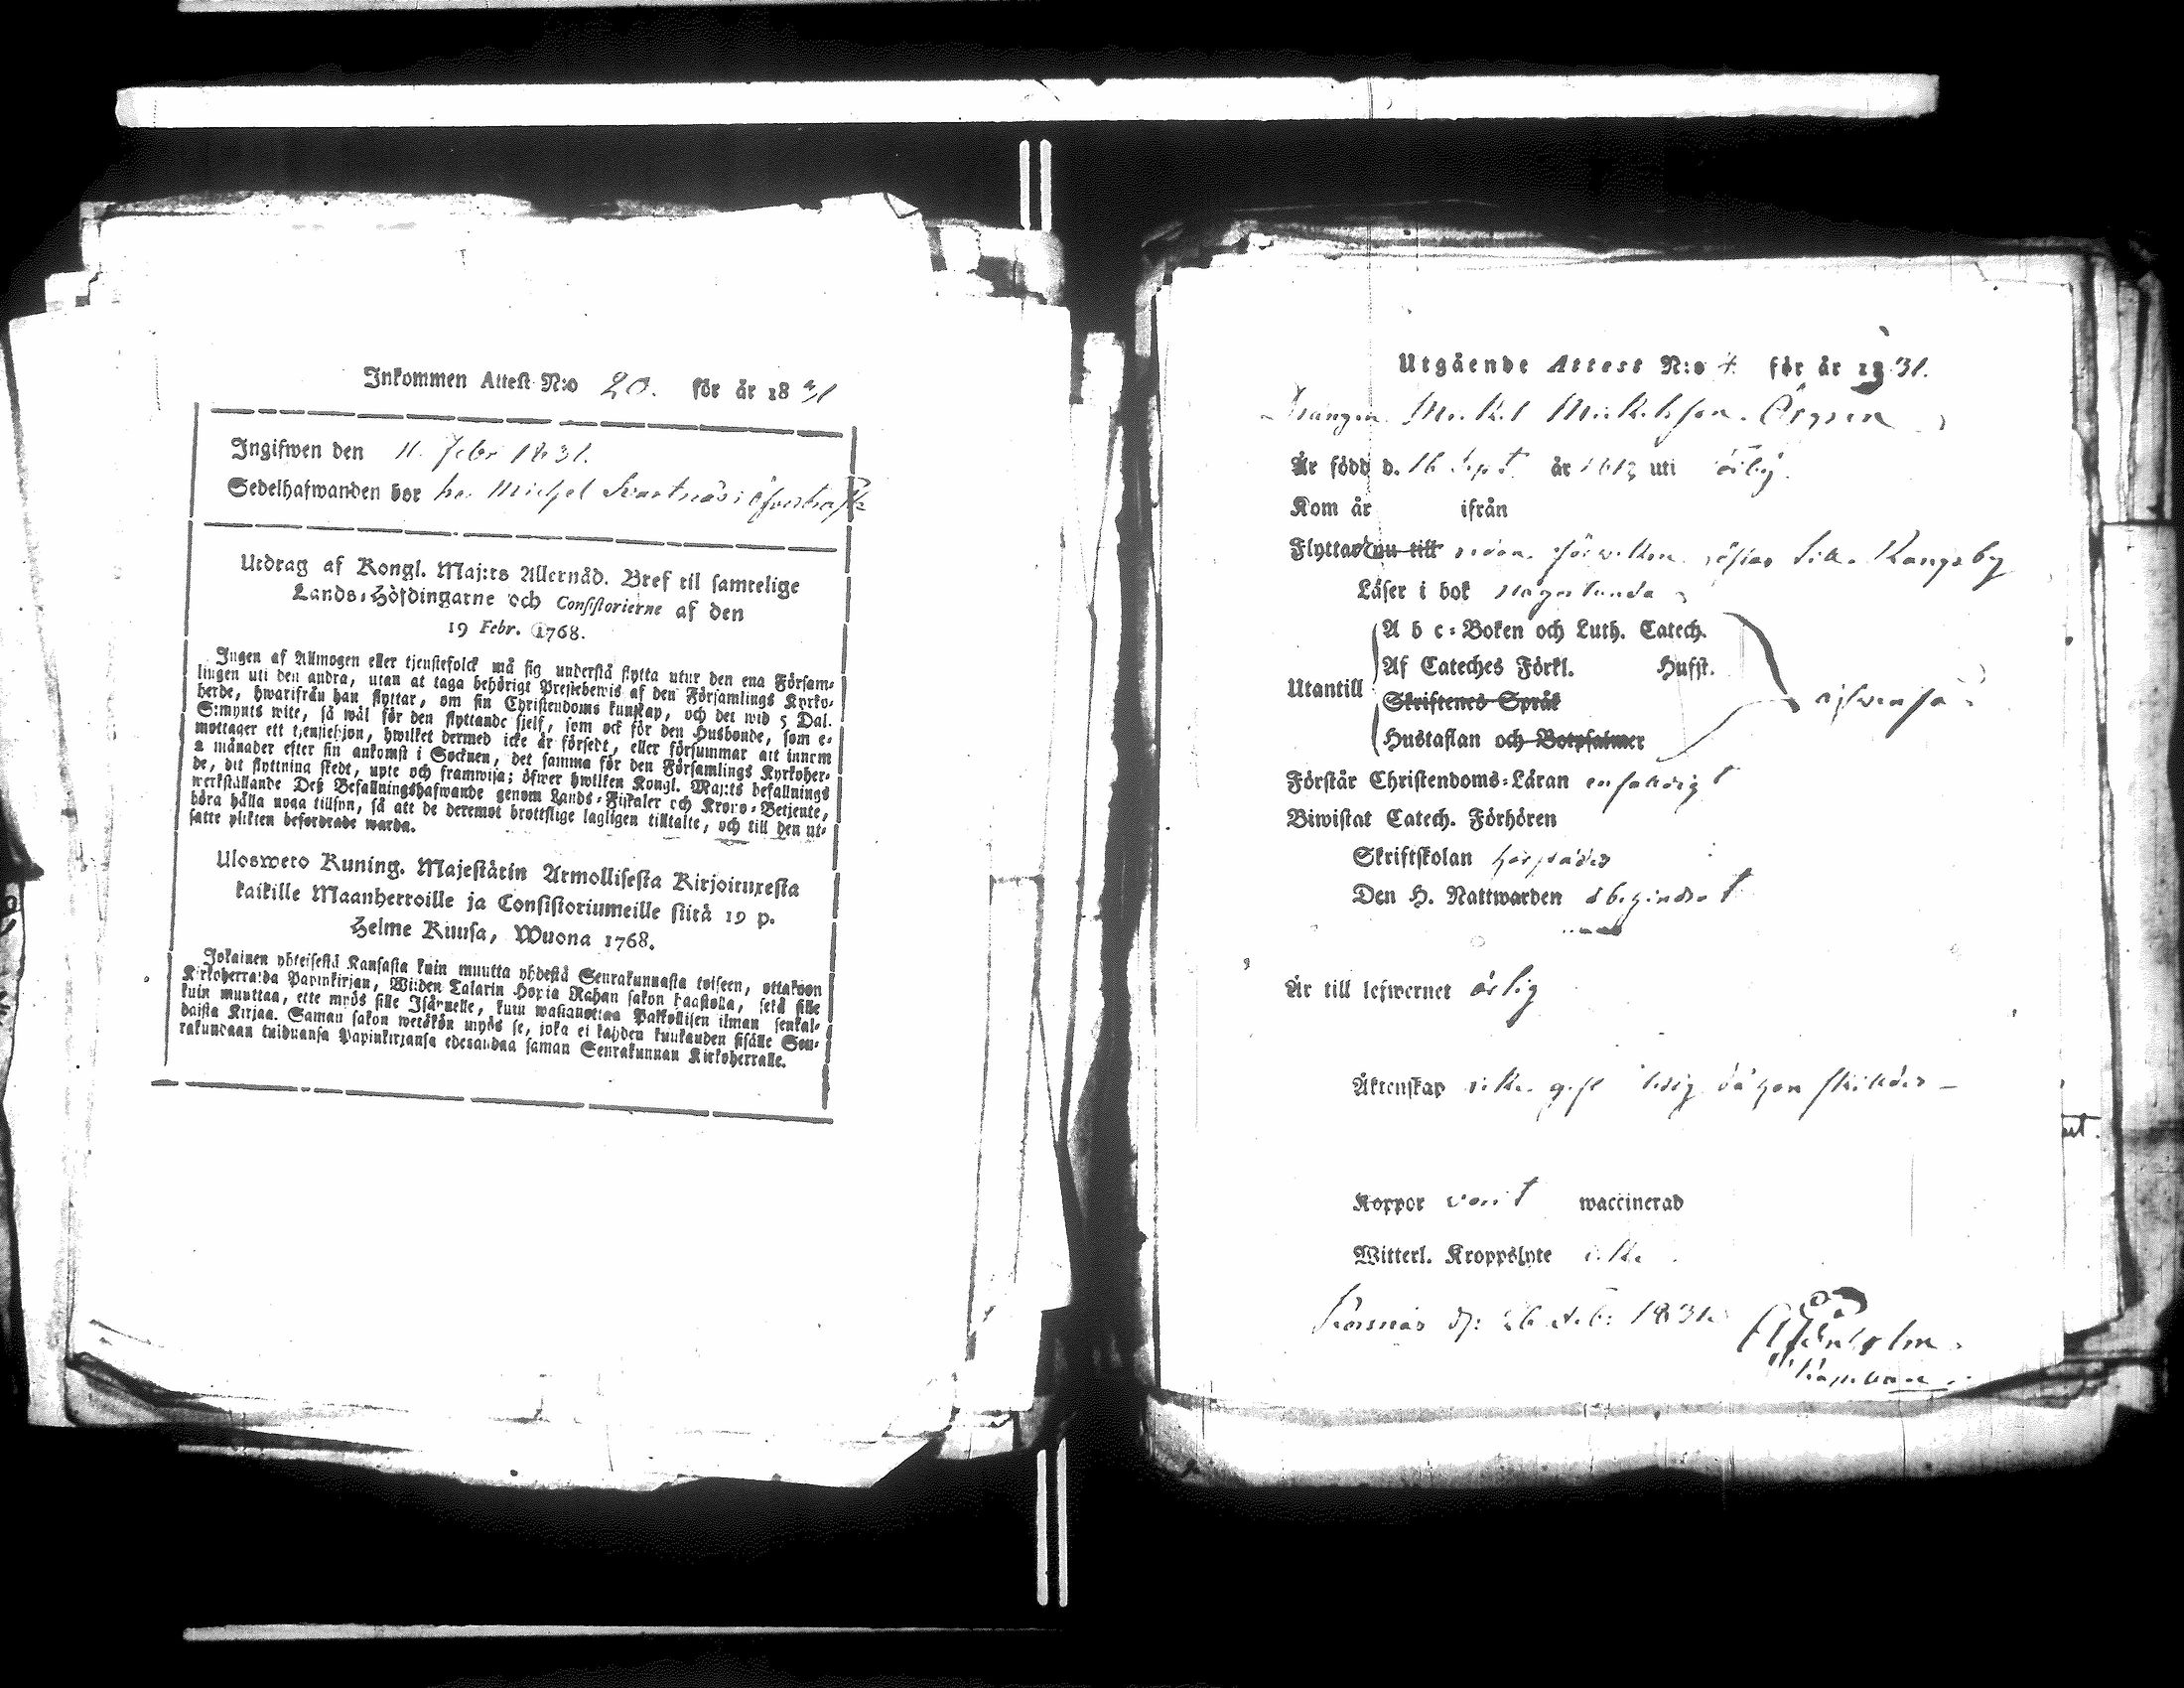 Inkommen Attest N:o 20. för år 1831
Ingifwen den 11. Febr 1831.
Sedelhafwanden bor hos Michel Svartnäs i
Utdrag af Kongl. Maj:ts Allernåd. Bref til samtelige
Lands-Höfdingarne och Consistorierne af den
19 Febr. 1768.
Ingen af Allmogen eller tjenstefolck må sig understå flytta utur den ena Försam-
lingen uti den andra, utan at taga behörigt Prestebewis af den Församlings Kyrko-
herde, hwarifrån han flyttar, om sin Christendoms kunskap, och det wid 5 Dal.
S:mynts wite, så wäl för den flyttande sjelf, som ock för den Husbonde, som e-
mottager ett tjenstehjon, hwilket dermed icke är försedt, eller försummar att innom
2 månader efter sin ankomst i Socknen, det samma för den Församlings Kyrkoher-
de, dit flyttning skedt, upte och framwisa; öfwer hwilken Kongl. Maj:ts befallnings
werkställande Deß Befallningshafwande genom Lands-Fiskaler och Krono-Betjente,
böra hålla noga tillsyn, så att de deremot brottslige lagligen tilltalte, och till den ut-
satte plikten befordrade warda.
Ulosweto Kuning. Majestätin Armollisesta Kirjoituxesta
kaikille Maanherroille ja Consistoriumeille siitä 19 p.
Helme Kuusa, Wuona 1768.
Jokainen yhteisestä Kansasta kuin muutta yhdestä Seurakunnasta toiseen, ottakoon
Kirkoherralda Papinkirjan, Wiiden Talarin Hopia Rahan sakon haastolla, sekä sille
kuin muuttaa, ette myös sille Isännelle, kuin wastanottaa Palkollisen ilman senkal-
daista Kirjaa. Saman sakon wetäkön myös se, joka ei kahden kuukauden sisälle Seu-
rakundaan tulduansa Papinkirjansa edesandaa saman Seurakunnan Kirkoherralle.
Utgående Attest N:o 4. för år 1831.
Drängen Mickel Mickelsson
Är född d. 16 Sept. år 1813 uti
Kom år ifrån
Flyttar nu till
Läser i bok någorlunda
A b c-Boken och Luth. Catech.
Af Cateches Förkl. Husst.
Utantill
Skriftenes Språk
äfvenså
Hustaflan och Botpsalmer
Förstår Christendoms-Läran enfaldigt
Biwistat Catech. Förhören
Skriftskolan
Den H. Nattwarden obehindrat
Är till lefwernet ärlig
Äktenskap icke gift ledig då han skildes
Koppor varit waccinerad
Witterl. Kroppslyte icke
Korsnäs d: 26 Feb: 1831.
Kapellan